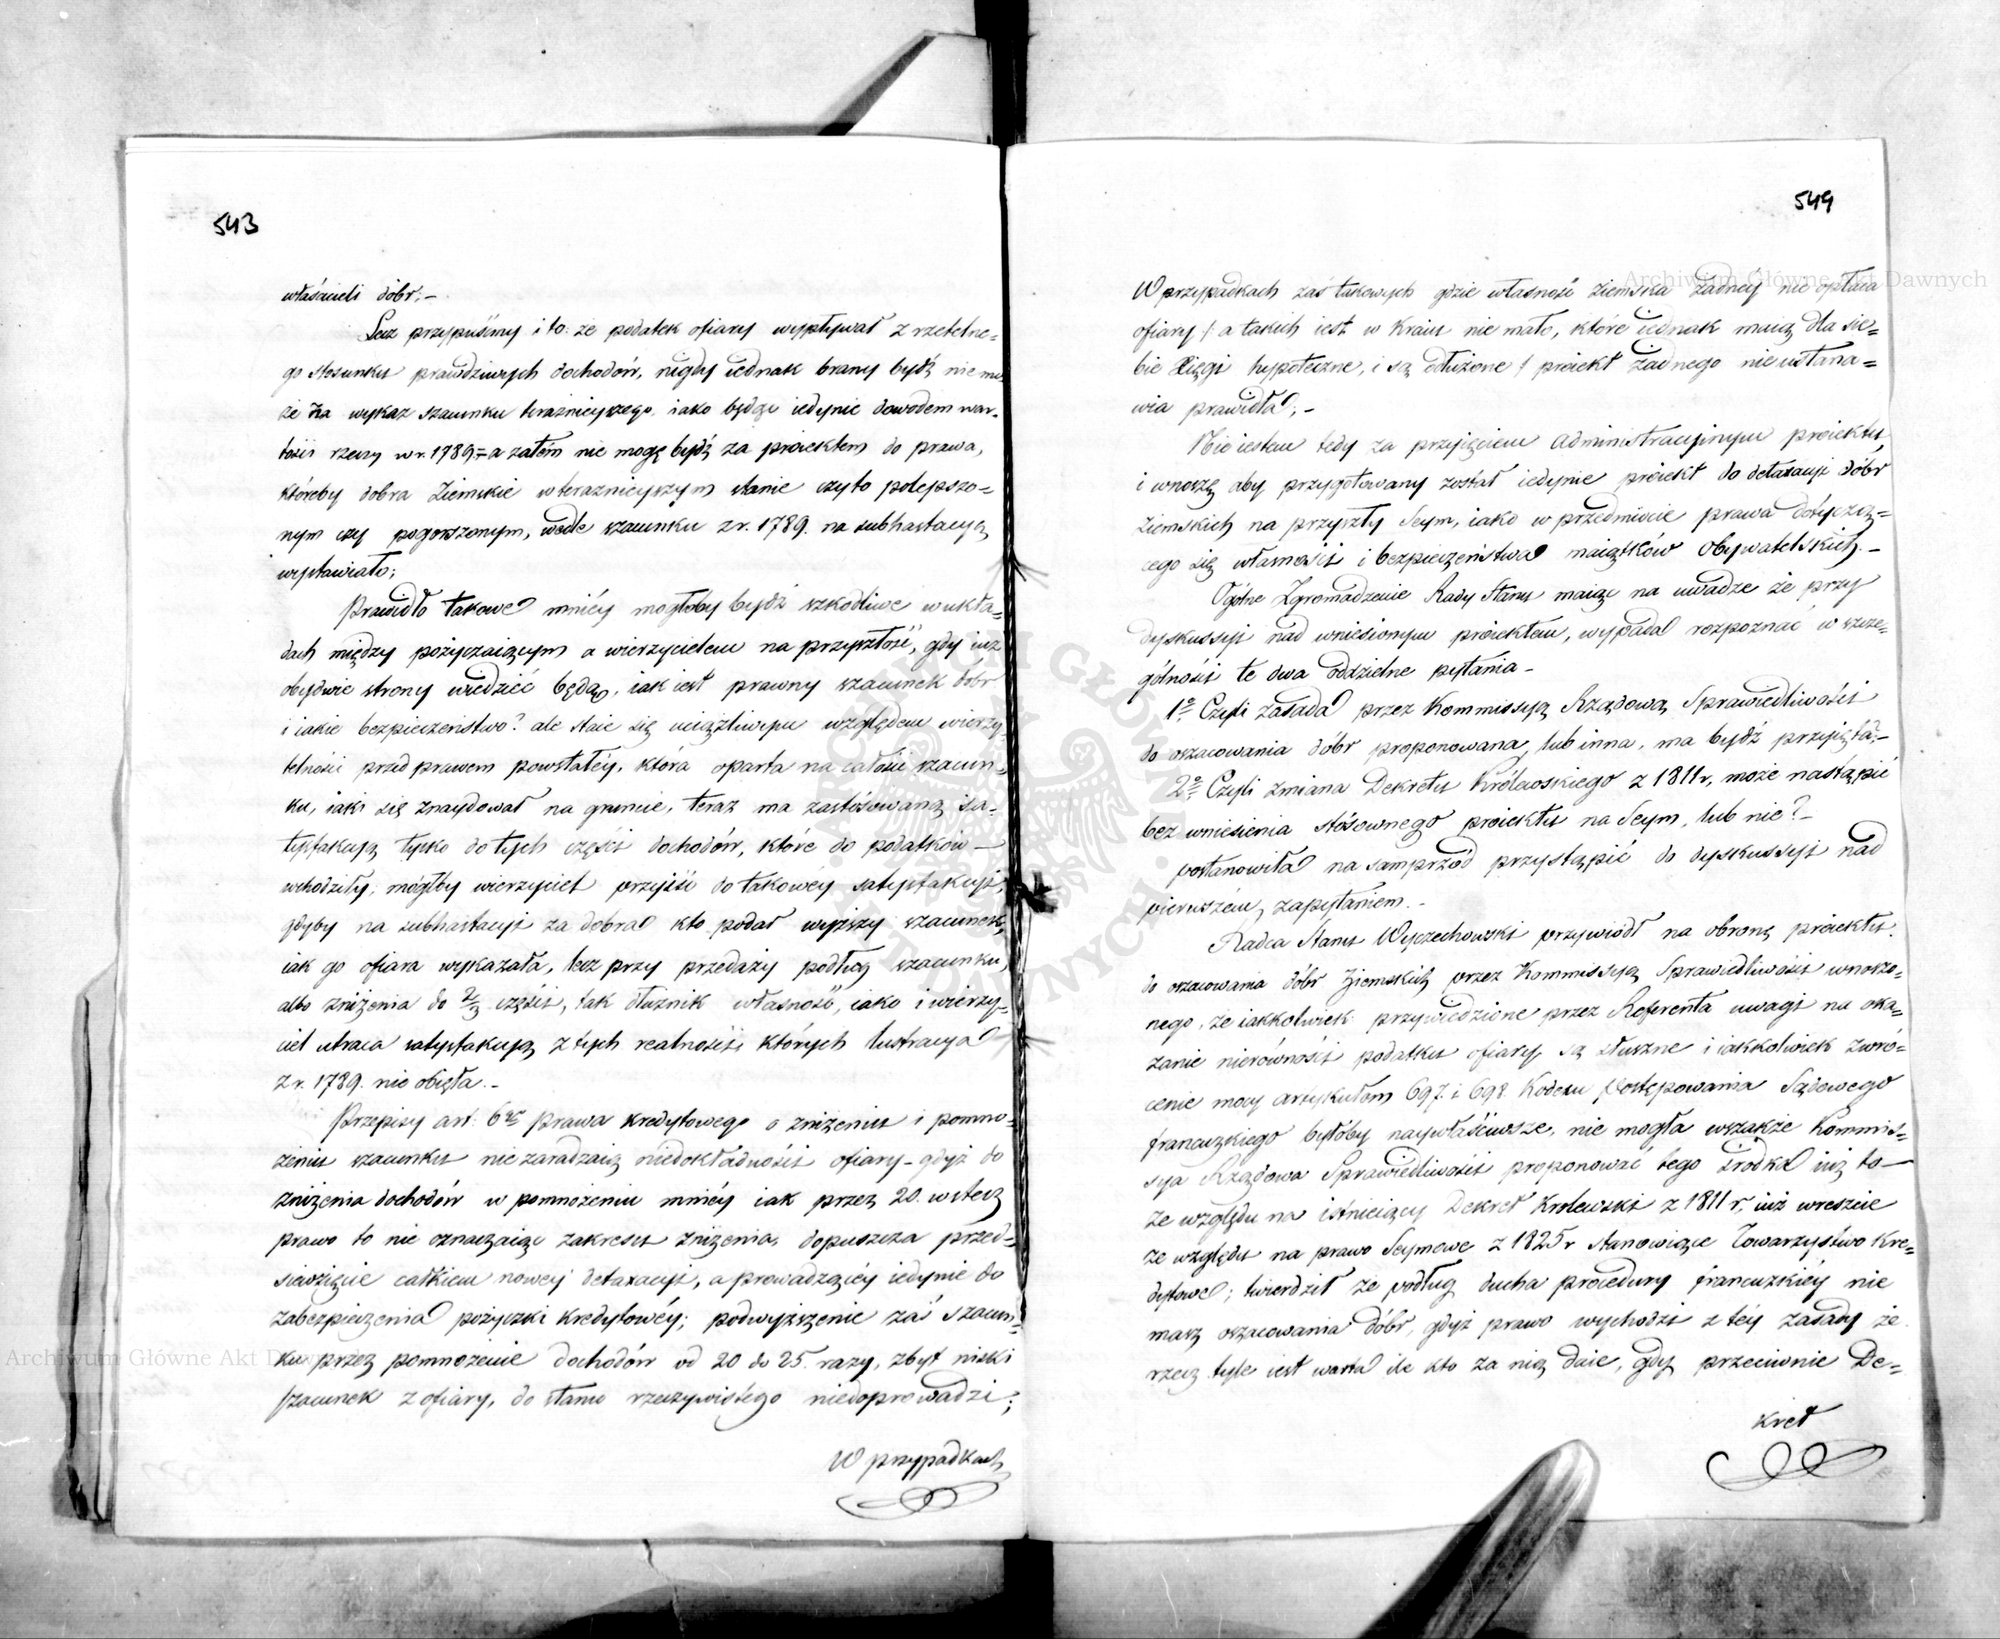 543
właścicieli dóbr; –
Lecz przypuśćmy i to: że podatek ofiary wypływał z rzetelne=
go stosunku prawdziwych dochodów, nigdy iednak brany bydź nie mo=
że za wykaz szacunku teraźnieyszego, iako będąc iedynie dowodem war=
tości rzeczy w r. 1789 = a zatém nie mogę bydź za proiektem do prawa,
któreby dobra Ziemskie w teraznieyszym stanie czy to polepszo=
nym czy pogorszonym, wedle szacunku z r. 1789. na subhastacyą
wystawiało;
Prawidło takowe mniéy mogłoby bydź szkodliwe w ukła=
dach między pożyczaiącym a wierzycielem na przyszłość, gdy iuż
obydwie strony wiedzieć będą, iak iest prawny szacunek dóbr
i iakie bezpieczeństwo? ale staie się uciążliwym względem wierzy
telności przed prawem powstałéy, która oparta na całości szacun=
ku, iaki się znaydował na gruncie, teraz ma zastósowaną sa=
tysfakcyą tylko do tych części dochodów, które do podatków –
wchodziły; mógłby wierzyciel przyiść do takowéy satysfakcyi,
gdyby na subhastacyi za dobra kto podał wyższy szacunek,
iak go ofiara wykazała, lecz przy przedaży podług szacunku,
albo zniżenia do 2/3 części, tak dłużnik własność, iako i wierzy=
ciel utraca satysfakcyą z tych realności, których lustracya
z r. 1789. nie obięła. –
Przepisy art: 6go prawa kredytowego o zniżeniu i pomno=
żeniu szacunku nie zaradzaią niedokładności ofiary – gdyż do
zniżenia dochodów w pomnożeniu mniéy iak przez 20. wstecz
prawo to nie oznaczaiąc zakresu zniżenia, dopuszcza przed=
sięwzięcie całkiem nowéy detaxacyi, a prowadzącéy iedynie do
zabezpieczenia pożyczki kredytowéy; podwyższenie zaś szacun=
ku przez pomnożenie dochodów od 20 do 25. razy, zbyt niski
szacunek z ofiary, do stanu rzeczywistego niedoprowadzi;
W przypadkach
549
W przypadkach zaś takowych gdzie własność ziemska żadnéy nie opłaca
ofiary /: a takich iest w kraiu nie mało, które iednak maią dla sie=
bie xięgi hypoteczne, i są odłużone :/ proiekt żadnego nie ustana=
wia prawidła; –
Nie iestem tedy za przyięciem administracyinym proiektu,
i wnoszę aby przygotowany został iedynie proiekt do detaxacyi dóbr
ziemskich na przyszły Seym, iako w przedmiocie prawa dotyczą=
cego się własności i bezpieczeństwa maiątków Obywatelskich. –
Ogólne Zgromadzenie Rady Stanu maiąc na uwadze że przy
dyskussyi nad wniesionym proiektem, wypada rozpoznać w szcze=
gólności te dwa oddzielne pytania –
1o Czyli zasada przez Kommissyą Rządową Sprawiedliwości
do oszacowania dóbr proponowana, lub inna, ma bydź przyięta; –
2o Czyli zmiana Dekretu Królewskiego z 1811 r, może nastąpić
bez wniesienia stósownego proiektu na Seym, lub nie? –
postanowiła na samprzód przystąpić do dyskussyi nad
pierwszém zapytaniem. –
Radca Stanu Wyczechowski przywiódł na obronę proiektu.
do oszacowania dóbr Ziemskich przez Kommissyą Sprawiedliwości wnoszo=
nego, że iakkolwiek przywiedzione przez Referenta uwagi na oka=
zanie nierówności podatku ofiary są słuszne i iakkolwiek zwró=
cenie mocy artykułom 697. i 698. Kodexu Postępowania Sądowego
francuzkiego byłoby naywłaściwsze, nie mogła wszakże Kommis=
sya Rządowa Sprawiedliwości proponować tego środka iuż to –
ze względu na istnieiący Dekret Królewski z 1811 r, iuż wreszcie
ze względu na prawo Seymowe z 1825 r stanowiące Towarzystwo Kre=
dytowe; twierdził że podług ducha procedury francuzkiéy nie
masz oszacowania dóbr, gdyż prawo wychodzi z téy zasady że
rzecz tyle iest warta ile kto za nią daie, gdy przeciwnie De=
kret
Archiwum Główne Akt Dawnych